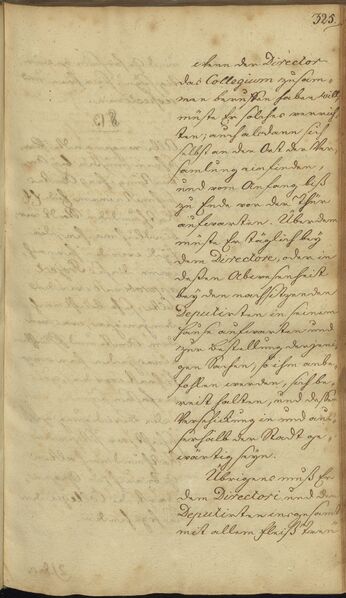 325.
Wenn der Director
das Collegium zusam-
men beruffen haben will,
müste Er solches verrich-
ten, auch alsdann sich
selbst an den Ort der Ver-
samlung einfinden,
und vom Anfang biß
zu Ende vor der Thür
aufwarten. Überdem
müste Er täglich bey
dem Directore, oder in
deßen Abwesenheit
bey den nachsitzenden
Deputirten in seinem
Hause aufwarten und
zur Bestellung derjeni-
gen Sachen, so ihm anbe-
fohlen werden, sich be-
reit halten, und deßen
Verschickung in und aus-
serhalb der Stadt ge-
wärtig seyn.
Übrigens muß Er
dem Directori und den
Deputirten insgesamt
mit allem Fleiß treu